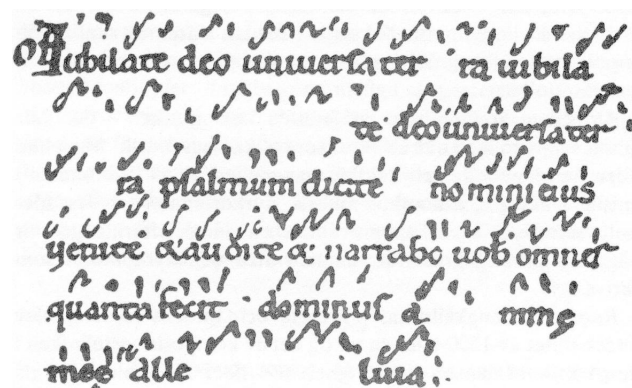 OF Iubilate deo uniuersa ter ra iubila
te deo uniuersa ter
ra psalmum dicite nomini eius
uenite & audite & narrabo uob omnes
quanta fecit dominus a nimę
meę alle luia.